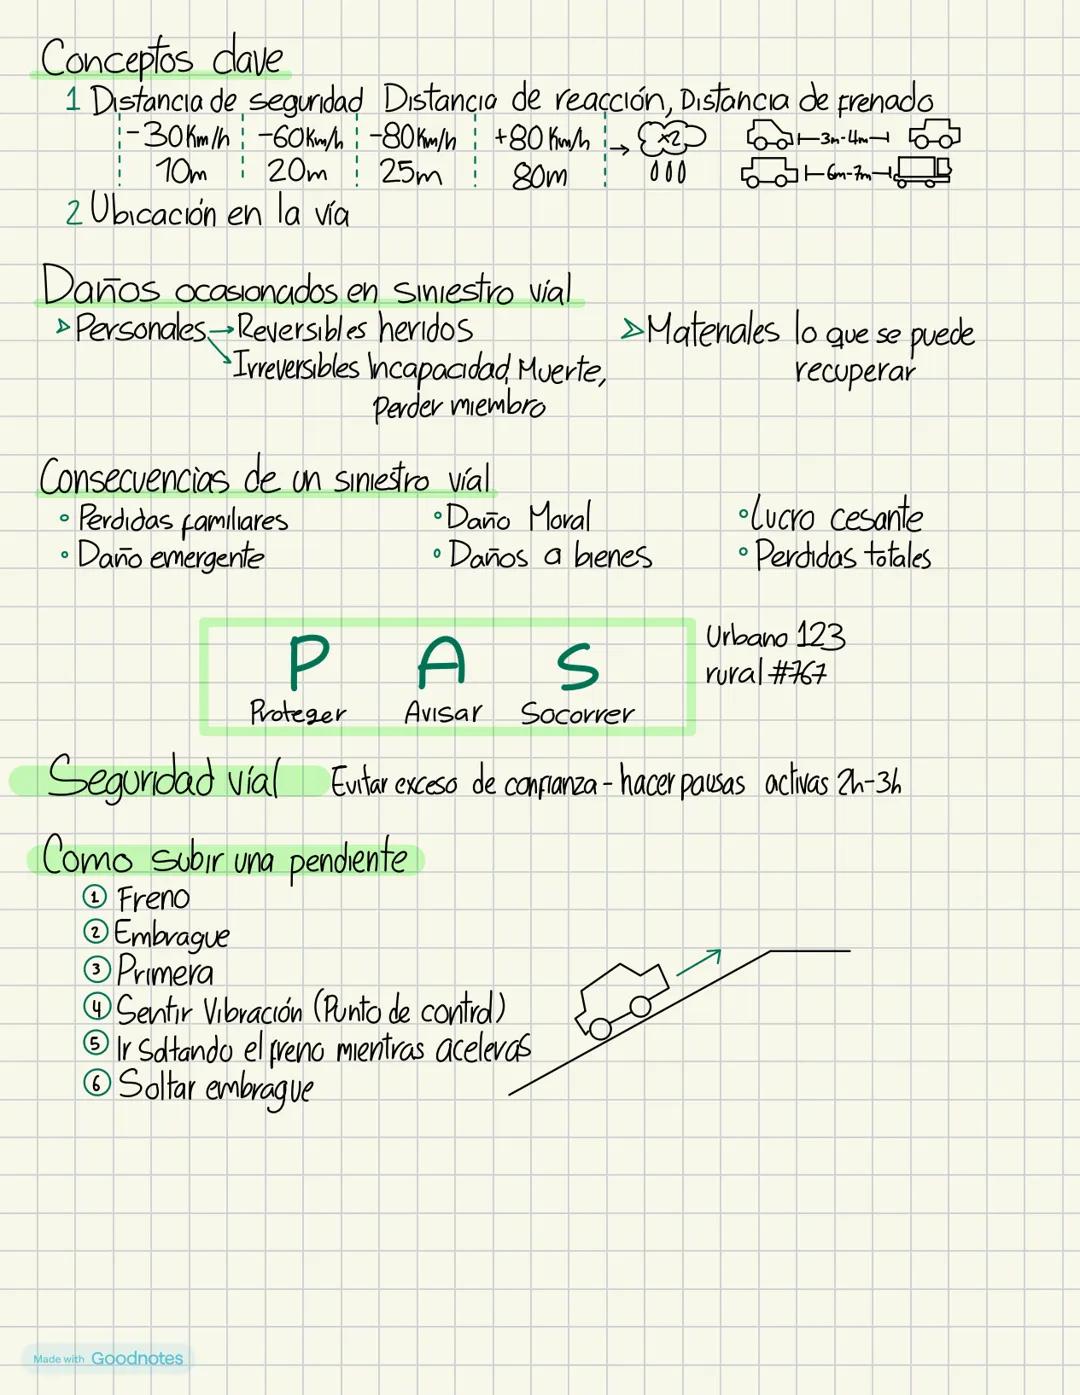 Conceptos clave
1 Distancia de seguridad Distancia de reacción, Distancia de frenado
-30Km/h -60Km/h -80Km/h +80Km/h → x2 3m-4m
10m 20m 25m 80m 6m-7m
2 Ubicación en la vía
Daños ocasionados en siniestro víal
> Personales → Reversibles heridos
Irreversibles Incapacidad, Muerte,
Perder miembro
> Materiales lo que se puede
recuperar
Consecuencias de un siniestro víal
• Perdidas familiares
• Daño emergente
• Daño Moral
• Daños a bienes
• Lucro cesante
• Perdidas totales
P A S
Proteger Avisar Socorrer
Urbano 123
rural #767
Seguridad víal Evitar exceso de confianza - hacer pausas activas 2h-3h
Como subir una pendiente
1 Freno
2 Embrague
3 Primera
4 Sentir Vibración (Punto de control)
5 Ir soltando el freno mientras aceleras
6 Soltar embrague
Made with Goodnotes